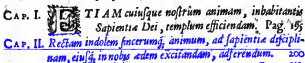 CAP. I. ETIAM cuiusque nostrum animam, inhabitantis
Sapientiæ Dei, templum efficiendam. Pag. 195
CAP. II. Rectam indolem sincerumq́; animum, ad sapientiæ discipli-
nam, eiusq́; in nobis ædem excitandam, adferendum. 200